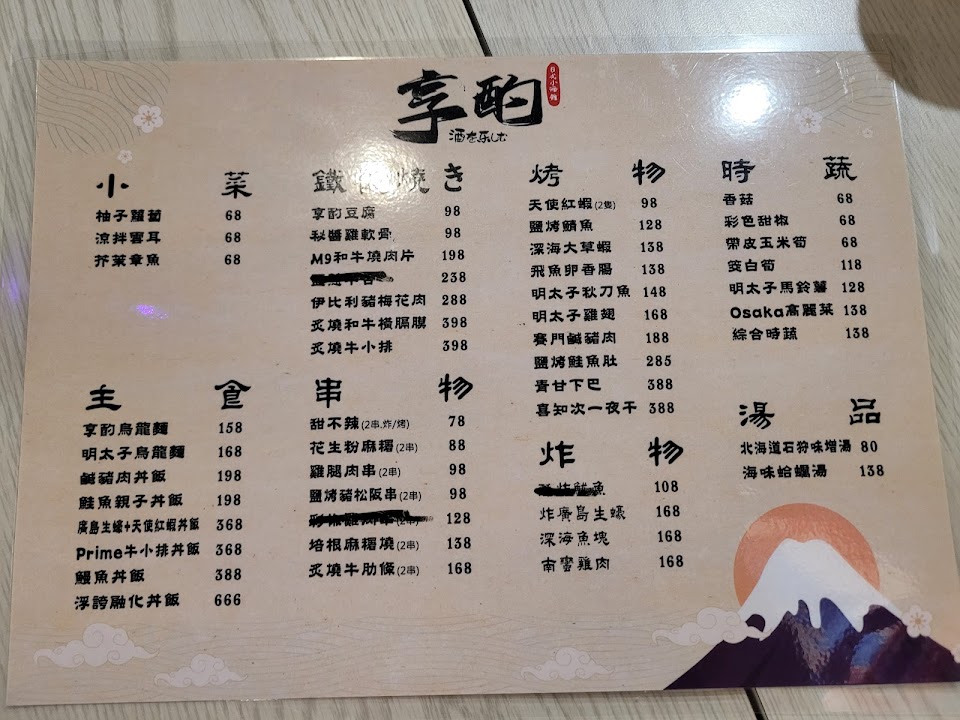 享酌
日式小酒館
酒を楽しむ
小菜
柚子蘿蔔 68
涼拌雲耳 68
芥茉章魚 68
鐵板燒き
享酌豆腐 98
秘醬雞軟骨 98
M9和牛燒肉片 198
238
伊比利豬梅花肉 288
炙燒和牛橫膈膜 398
炙燒牛小排 398
烤物
天使紅蝦(2隻) 98
鹽烤鯖魚 128
深海大草蝦 138
飛魚卵香腸 138
明太子秋刀魚 148
明太子雞翅 168
賽門鹹豬肉 188
鹽烤鮭魚肚 285
青甘下巴 388
喜知次一夜干 388
時蔬
香菇 68
彩色甜椒 68
帶皮玉米筍 68
筊白筍 118
明太子馬鈴薯 128
Osaka高麗菜 138
綜合時蔬 138
主食
享酌烏龍麵 158
明太子烏龍麵 168
鹹豬肉丼飯 198
鮭魚親子丼飯 198
廣島生蠔+天使紅蝦丼飯 368
Prime牛小排丼飯 368
鰻魚丼飯 388
浮誇融化丼飯 666
串物
甜不辣(2串.炸/烤) 78
花生粉麻糬(2串) 88
雞腿肉串(2串) 98
鹽烤豬松阪串(2串) 98
(2串) 128
培根麻糬燒(2串) 138
炙燒牛肋條(2串) 168
炸物
魚 108
炸廣島生蠔 168
深海魚塊 168
南蠻雞肉 168
湯品
北海道石狩味增湯 80
海味蛤蠣湯 138